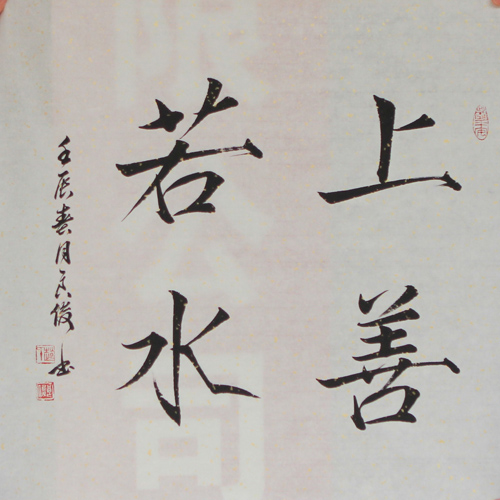 上善
若水
壬辰春月良俊书